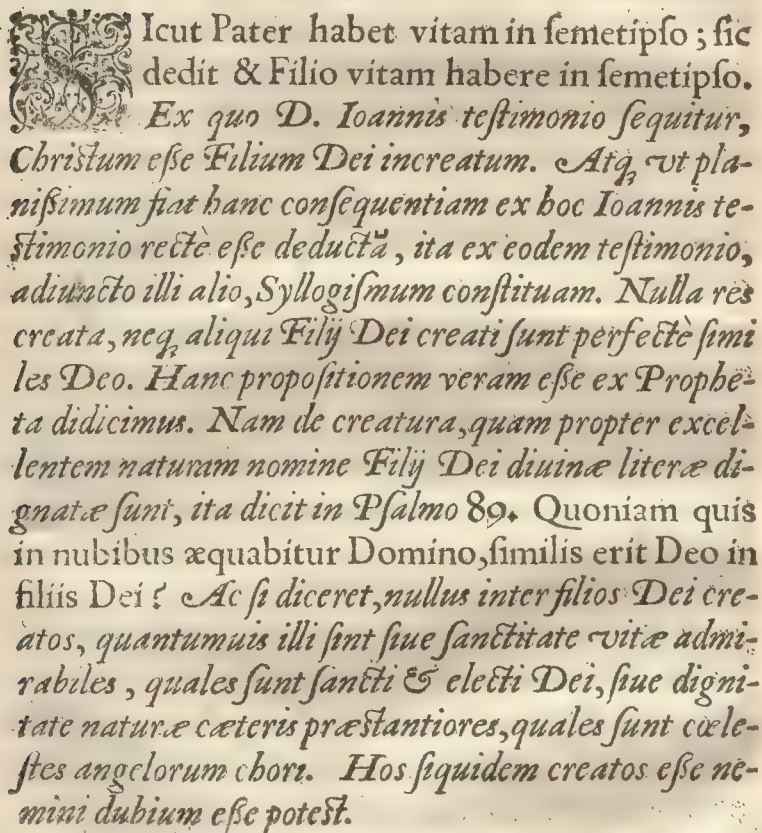 SIcut Pater habet vitam in ſemetipſo; ſic
dedit & Filio vitam habere in ſemetipſo.
Ex quo D. Ioannis teſtimonio ſequitur,
Chriſtum eſſe Filium Dei increatum. Atq́; vt pla-
niſsimum fiat hanc conſequentiam ex hoc Ioannis te-
ſtimonio rectè eſſe deductã, ita ex eodem teſtimonio,
adiuncto illi alio, Syllogiſmum conſtituam. Nulla res
creata, neq; aliqui Filij Dei creati ſunt perfectè ſimi
les Deo. Hanc propoſitionem veram eſſe ex Prophe-
ta didicimus. Nam de creatura, quam propter excel-
lentem naturam nomine Filij Dei diuinæ literæ di-
gnatæ ſunt, ita dicit in Pſalmo 89. Quoniam quis
in nubibus æquabitur Domino, ſimilis erit Deo in
filiis Dei? Ac ſi diceret, nullus inter filios Dei cre-
atos, quantumuis illi ſint ſiue ſanctitate vitæ admi-
rabiles, quales ſunt ſancti & electi Dei, ſiue digni-
tate naturæ cæteris præſtantiores, quales ſunt cœle-
ſtes angelorum chori. Hos ſiquidem creatos eſſe ne-
mini dubium eſſe poteſt.